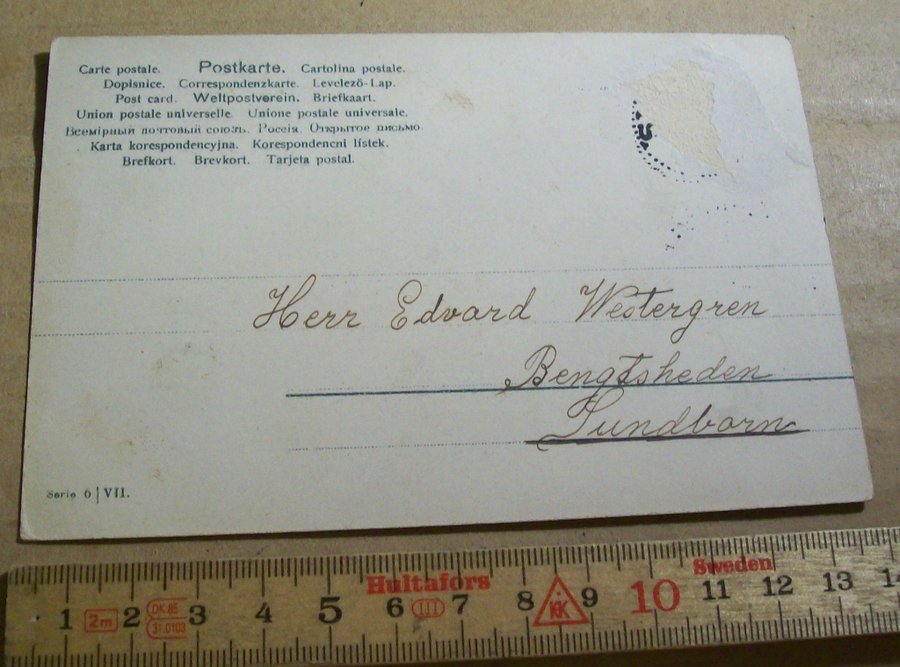 Carte postale. Postkarte. Cartolina postale.
Dopisnice. Correspondenzkarte. Levelező-Lap.
Post card. Weltpostverein. Briefkaart.
Union postale universelle. Unione postale universale.
Всемірный почтовый союзъ. Россія. Открытое письмо.
Karta korespondencyjna. Korespondencni lístek.
Brefkort. Brevkort. Tarjeta postal.
Herr Edvard Westergren
Bengtsheden
Sundborn
Serie 6 | VII.
Hultafors Sweden
1 2m 2 DK 85 3 4 5 6 III 7 8 K 9 10 11 12 13 14
31.0103